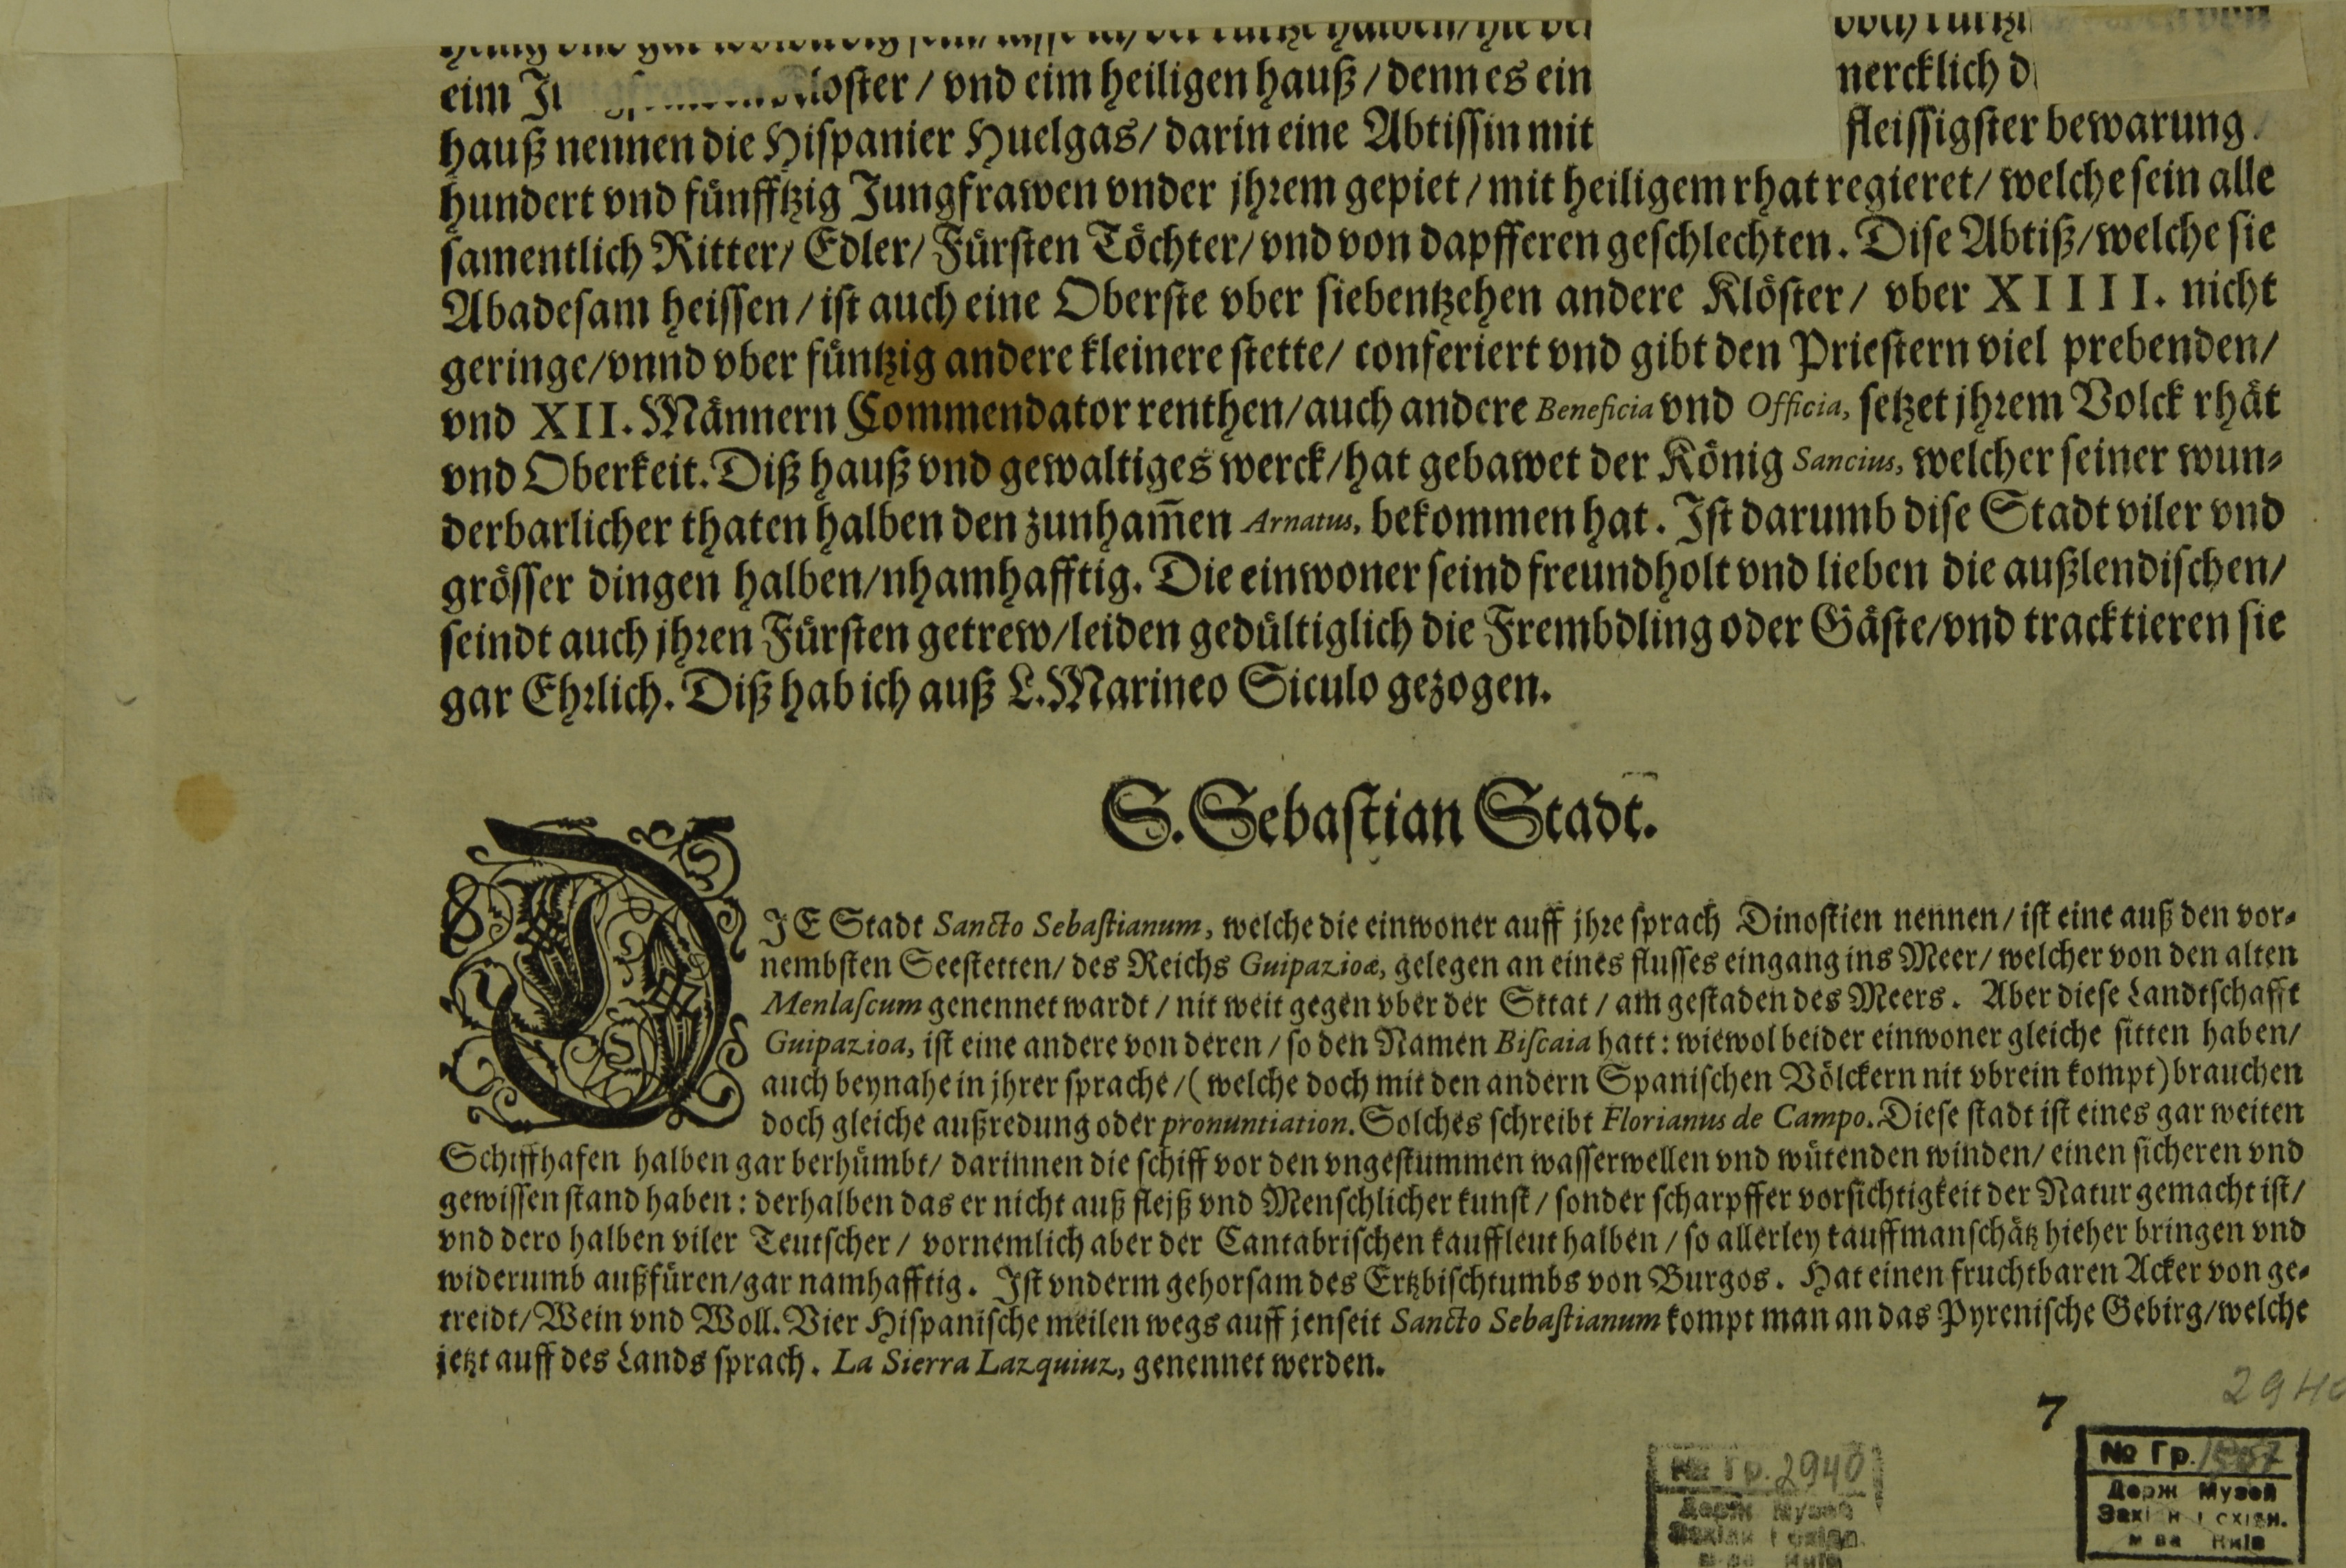 eim Kloster / vnd eim heiligen hauß / denn es ein nercklich
hauß nennen die Hispanier Huelgas / darin eine Abtissin mit fleissigster bewarung
hundert vnd fünfftzig Jungfrawen vnder jhrem gepiet / mit heiligem rhat regieret / welche sein alle
samentlich Ritter / Edler / Fürsten Töchter / vnd von dapfferen geschlechten. Dise Abtiß / welche sie
Abadesam heissen / ist auch eine Oberste vber siebentzehen andere Klöster / vber XIIII. nicht
geringe / vnnd vber füntzig andere kleinere stette / conferiert vnd gibt den Priestern viel prebenden /
vnd XII. Männern Commendator renthen / auch andere Beneficia vnd Officia, setzet jhrem Volck rhät
vnd Oberkeit. Diß hauß vnd gewaltiges werck / hat gebawet der König Sancius, welcher seiner wun-
derbarlicher thaten halben den zunham̄en Arnatus, bekommen hat. Ist darumb dise Stadt viler vnd
grösser dingen halben / nhamhafftig. Die einwoner seind freundholt vnd lieben die außlendischen /
seindt auch jhren Fürsten getrew / leiden gedültiglich die Frembdling oder Gäste / vnd tracktieren sie
gar Ehrlich. Diß hab ich auß L. Marineo Siculo gezogen.
S. Sebastian Stadt.
DIE Stadt Sancto Sebastianum, welche die einwoner auff jhre sprach Dinostien nennen / ist eine auß den vor-
nembsten Seestetten / des Reichs Guipazioæ, gelegen an eines flusses eingang ins Meer / welcher von den alten
Menlascum genennet wardt / nit weit gegen vber der Sttat / am gestaden des Meers. Aber diese Landtschafft
Guipazioa, ist eine andere von deren / so den Namen Biscaia hatt : wiewol beider einwoner gleiche sitten haben /
auch beynahe in jhrer sprache / ( welche doch mit den andern Spanischen Völckern nit vbrein kompt) brauchen
doch gleiche außredung oder pronuntiation. Solches schreibt Florianus de Campo. Diese stadt ist eines gar weiten
Schiffhafen halben gar berhümbt / darinnen die schiff vor den vngestummen wasserwellen vnd wütenden winden / einen sicheren vnd
gewissen stand haben : derhalben das er nicht auß fleiß vnd Menschlicher kunst / sonder scharpffer vorsichtigkeit der Natur gemacht ist /
vnd dero halben viler Teutscher / vornemlich aber der Cantabrischen kauffleut halben / so allerley kauffmanschätz hieher bringen vnd
widerumb außfüren / gar namhafftig. Ist vnderm gehorsam des Ertzbischtumbs von Burgos. Hat einen fruchtbaren Acker von ge-
treidt / Wein vnd Woll. Vier Hispanische meilen wegs auff jenseit Sancto Sebastianum kompt man an das Pyrenische Gebirg / welche
jetzt auff des Lands sprach. La Sierra Lazquiuz, genennet werden.
7
№ Гр. 2940
Держ Музей
№ Гр.
Держ Музей
Київ